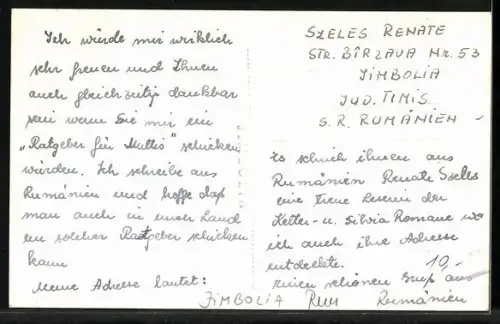 Ich würde mir wirklich
sehr freuen und Ihnen
auch gleichzeitig dankbar
sein wenn Sie mir ein
„Ratgeber für Muttis" schicken
würden. Ich schreibe aus
Rumänien und hoffe daß
man auch in unser Land
en solcher Ratgeber schicken
kann
Meine Adresse lautet:
SZELES RENATE
STR. BÎRZAVA NR. 53
JIMBOLIA
JUD. TIMIS
S. R. RUMÄNIEN
Es schrieb ihnen aus
Rumänien Renate Szeles
eine treue Leserin der
Kelter- u. Silvia Romane wo
ich auch ihre Adresse
entdeckte. 10,-
einen schönen Gruß aus
JIMBOLIA Rumänien